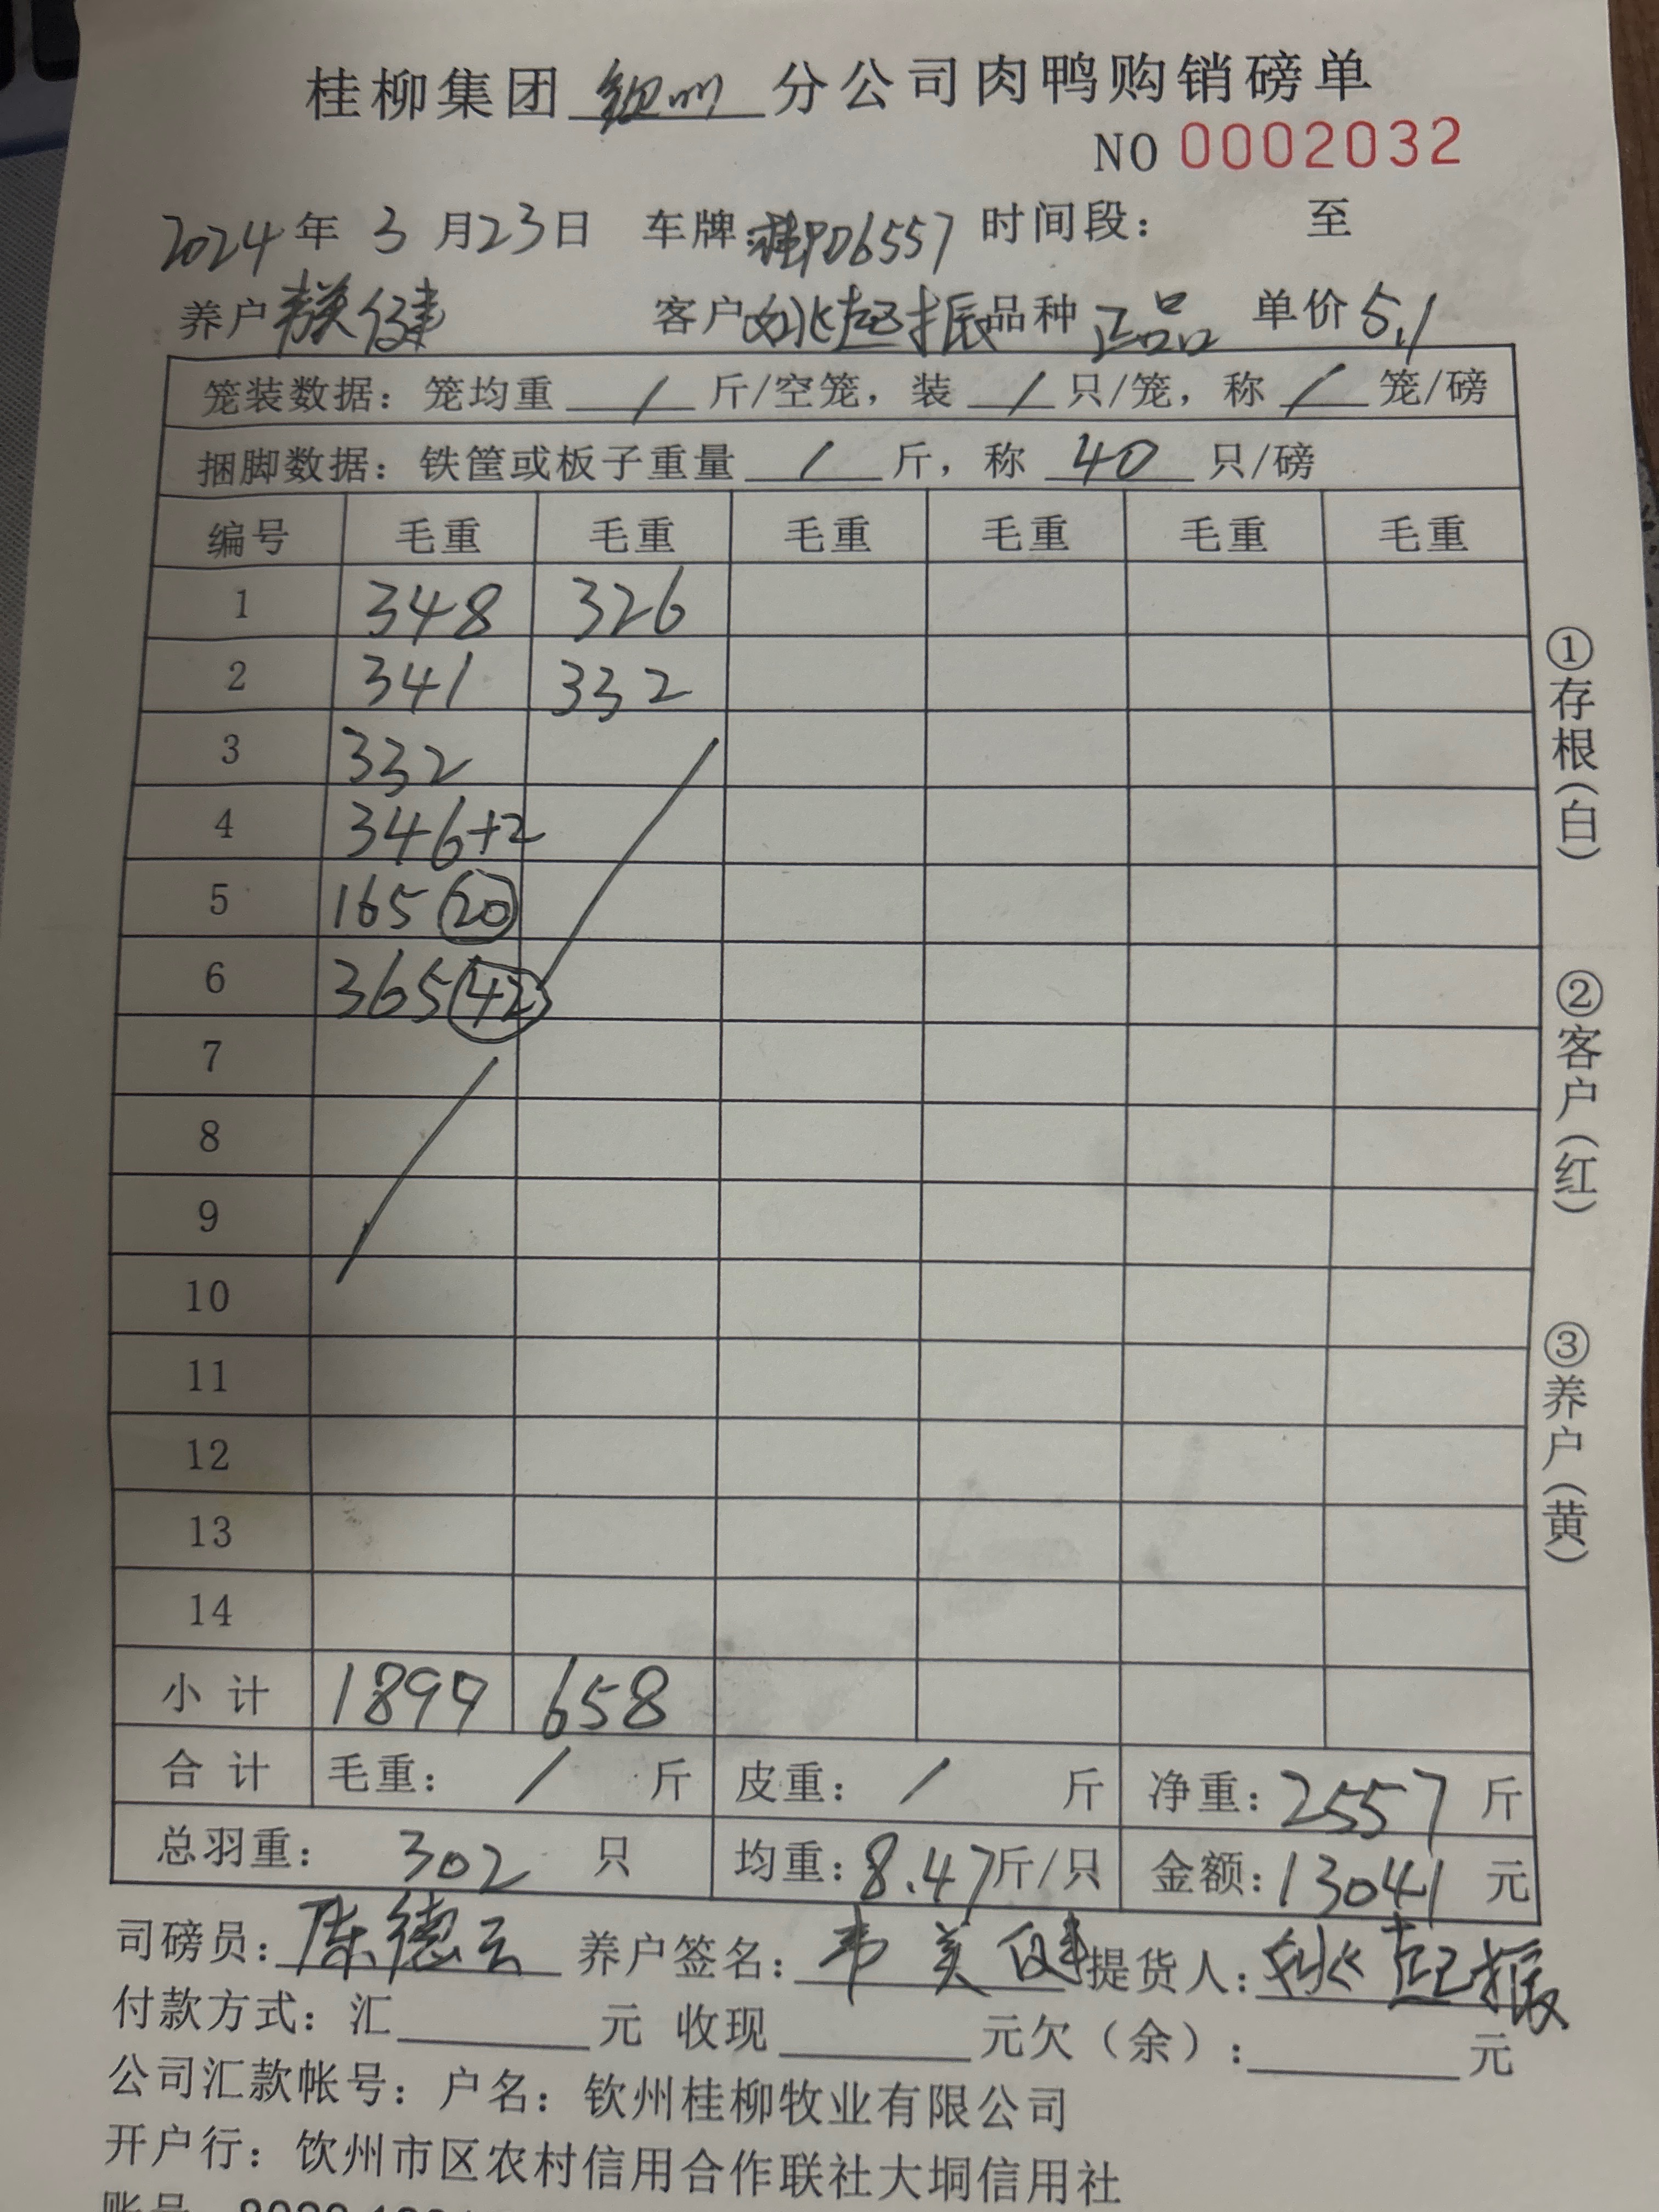 桂柳集团 钦州 分公司肉鸭购销磅单
NO 0002032
2024年 3 月23日 车牌:桂PD6557 时间段: 至
养户 韦美健 客户 姚起振 品种 正品 单价 5.1
笼装数据: 笼均重 / 斤/空笼, 装 / 只/笼, 称 / 笼/磅
捆脚数据: 铁筐或板子重量 / 斤, 称 40 只/磅
编号 毛重 毛重 毛重 毛重 毛重 毛重
1 348 326
2 341 332
3 332
4 346+2
5 165 20
6 365 42
7
8
9
10
11
12
13
14
小计 1899 658
合计 毛重: / 斤 皮重: / 斤 净重: 2557 斤
总羽重: 302 只 均重: 8.47斤/只 金额: 13041 元
司磅员: 陈德云 养户签名: 韦美健 提货人: 姚起振
付款方式: 汇 元 收现 元欠(余): 元
公司汇款帐号: 户名: 钦州桂柳牧业有限公司
开户行: 钦州市区农村信用合作联社大垌信用社
①存根(白)
②客户(红)
③养户(黄)